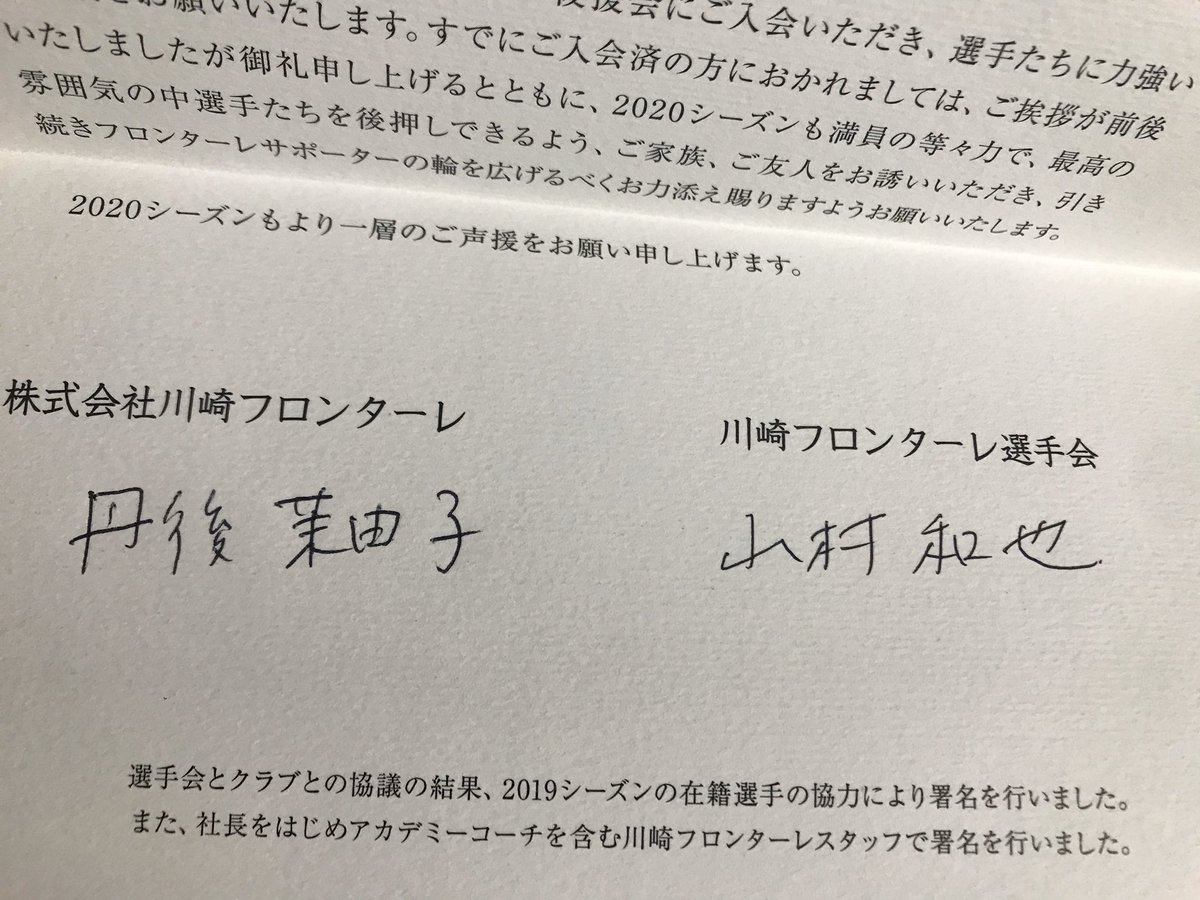 をお願いいたします。
後援会にご入会いただき、選手たちに力強い
いたします。すでにご入会済の方におかれましては、ご挨拶が前後
いたしましたが御礼申し上げるとともに、2020シーズンも満員の等々力で、最高の
雰囲気の中選手たちを後押しできるよう、ご家族、ご友人をお誘いいただき、引き
続きフロンターレサポーターの輪を広げるべくお力添え賜りますようお願いいたします。
2020シーズンもより一層のご声援をお願い申し上げます。
株式会社川崎フロンターレ
川崎フロンターレ選手会
丹後 茉由子
山村 和也
選手会とクラブとの協議の結果、2019シーズンの在籍選手の協力により署名を行いました。
また、社長をはじめアカデミーコーチを含む川崎フロンターレスタッフで署名を行いました。